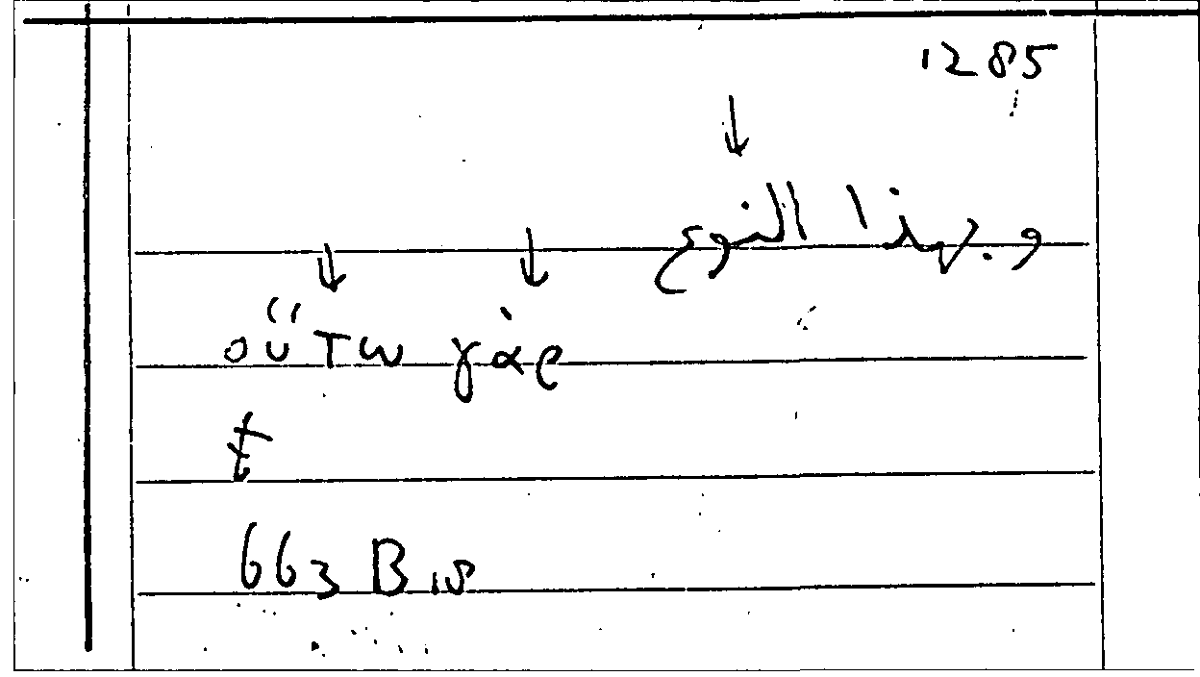 1285
و بهذا النوع
οὕτω γὰρ
t
663 B 18